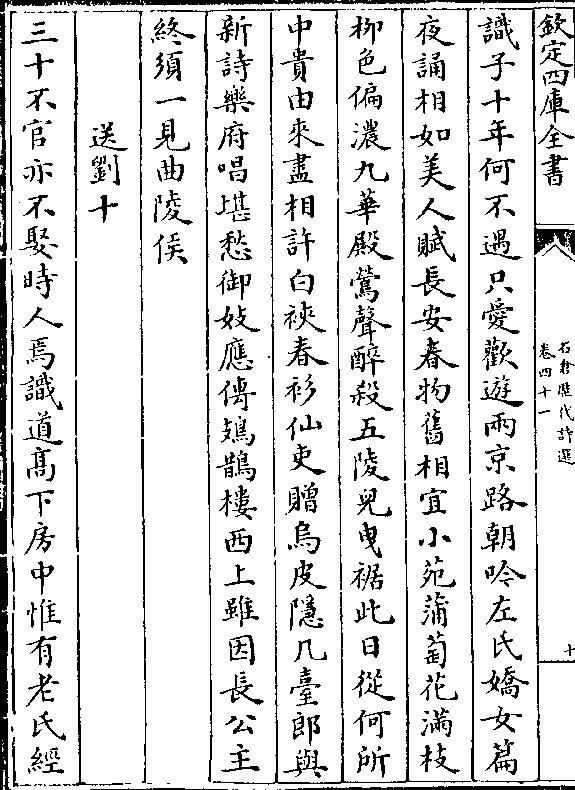 欽定四庫全書
石倉歷代詩選
卷四十一
十
識子十年何不遇只愛歡遊兩京路朝吟左氏嬌女篇
夜誦相如美人賦長安春物舊相宜小苑蒲萄花滿枝
柳色偏濃九華殿鶯聲醉殺五陵兒曵裾此日從何所
中貴由來盡相許白裌春衫仙吏贈烏皮隱几臺郎與
新詩樂府唱堪愁御妓應傳鳷鵲樓西上雖因長公主
終須一見曲陵侯
送劉十
三十不官亦不娶時人焉識道髙下房中惟有老氏經